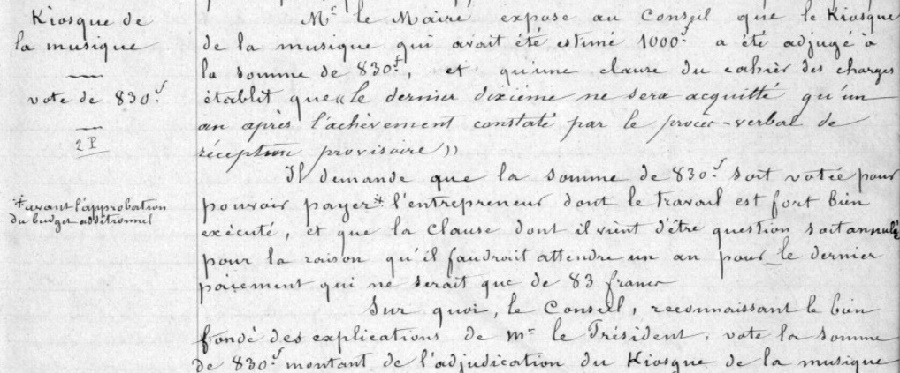 Kiosque de
la musique
vote de 830f
2 I
*avant l'approbation
du budget additionnel
Mr le Maire expose au Conseil que le Kiosque
de la musique qui avait été estimé 1000f a été adjugé à
la somme de 830f, et qu'une clause du cahier des charges
établit que « le dernier dixième ne sera acquitté qu'un
an après l'achèvement constaté par le procès-verbal de
réception provisoire »
Il demande que la somme de 830f soit votée pour
pouvoir payer* l'entrepreneur dont le travail est fort bien
exécuté, et que la clause dont il vient d'être question soit annulée
pour la raison qu'il faudrait attendre un an pour le dernier
paiement qui ne serait que de 83 francs
Sur quoi, le Conseil, reconnaissant le bien
fondé des explications de Mr le Président, vote la somme
de 830f montant de l'adjudication du Kiosque de la musique